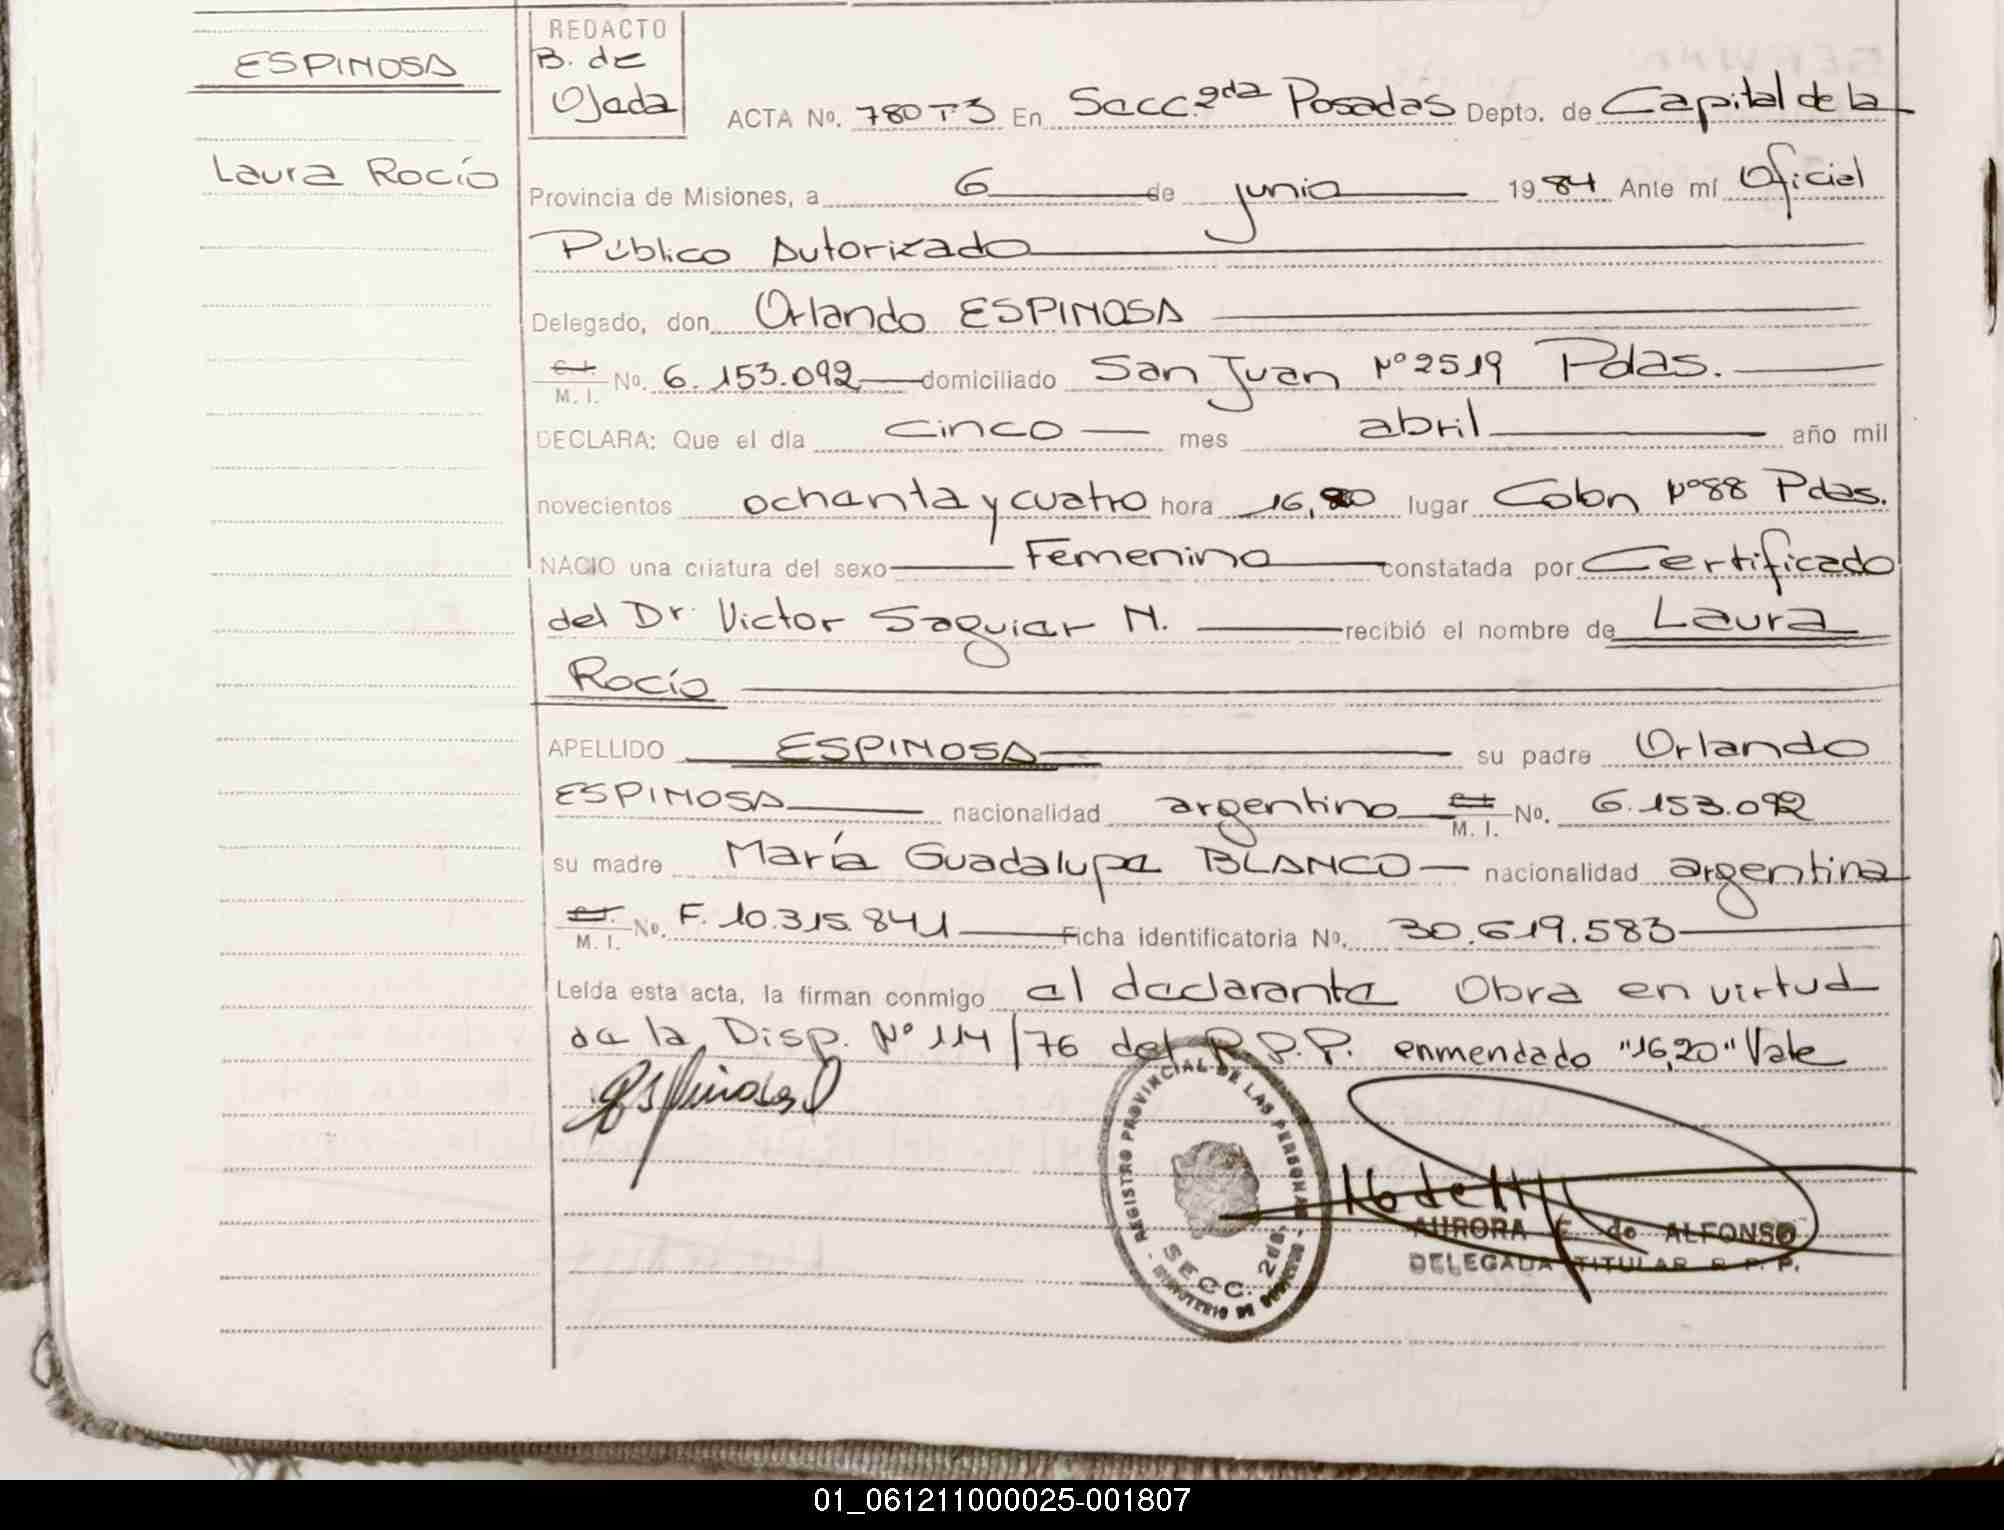 ESPINOSA
Laura Rocío
REDACTO
B. de
Ojeda
ACTA No. 780 T3 En Secc. 2da Posadas Depto. de Capital de la
Provincia de Misiones, a 6 de junio 1984 Ante mí Oficial
Público Autorizado
Delegado, don Orlando ESPINOSA
C.I. M. I. No. 6.153.092 domiciliado San Juan Nº 2519 Pdas.
DECLARA: Que el día cinco mes abril año mil
novecientos ochenta y cuatro hora 16,20 lugar Colón Nº 88 Pdas.
NACIO una criatura del sexo Femenino constatada por Certificado
del Dr. Victor Saguier N. recibió el nombre de Laura
Rocío
APELLIDO ESPINOSA su padre Orlando
ESPINOSA nacionalidad argentino C.I. M. I. No. 6.153.092
su madre María Guadalupe BLANCO nacionalidad argentina
C.I. M. I. No. F. 10.315.841 Ficha identificatoria No. 30.619.583
Leída esta acta, la firman conmigo el declarante Obra en virtud
de la Disp. Nº 114/76 del R.P.P. enmendado "16,20" Vale
Espinosa O
REGISTRO PROVINCIAL DE LAS PERSONAS
SECC. 2da.
MINISTERIO DE GOBIERNO
AURORA E. de ALFONSO
DELEGADA TITULAR R. P. P.
01_061211000025-001807